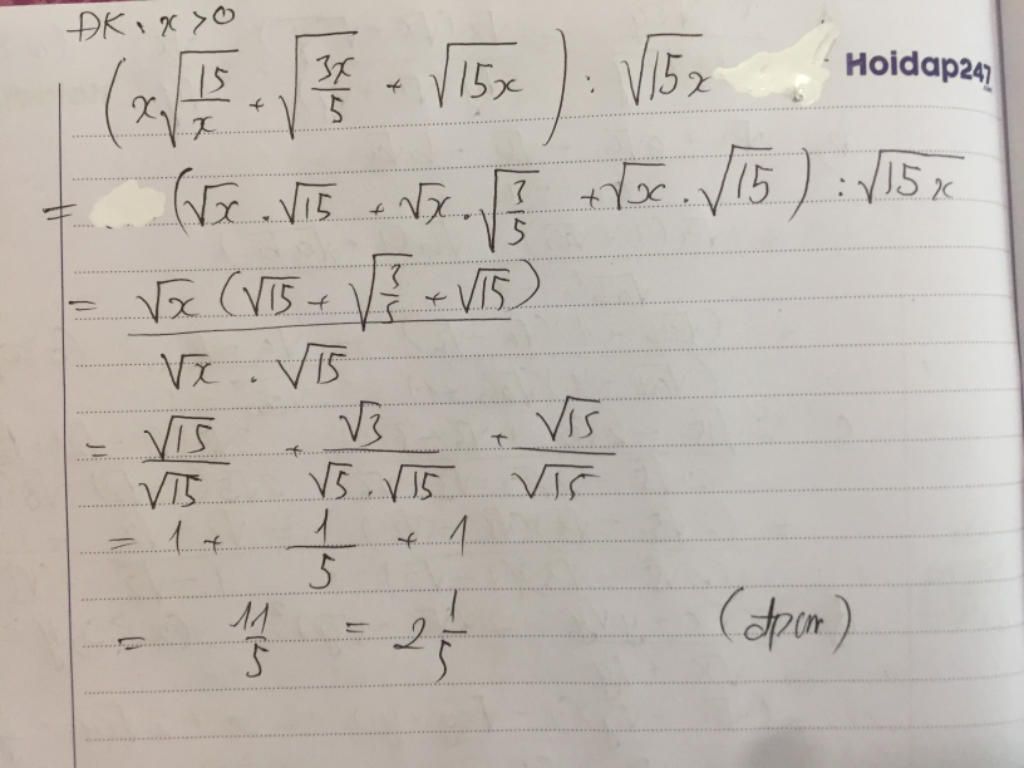 ĐK: x > 0
(x√(15/x) + √(3x/5) + √(15x)) : √(15x)
Hoidap247
.com
= (√x . √15 + √x . √(3/5) + √x . √15) : √(15x)
= √x (√15 + √(3/5) + √15) / (√x . √15)
= √15/√15 + √3/(√5 . √15) + √15/√15
= 1 + 1/5 + 1
= 11/5 = 2 1/5 (đpcm)